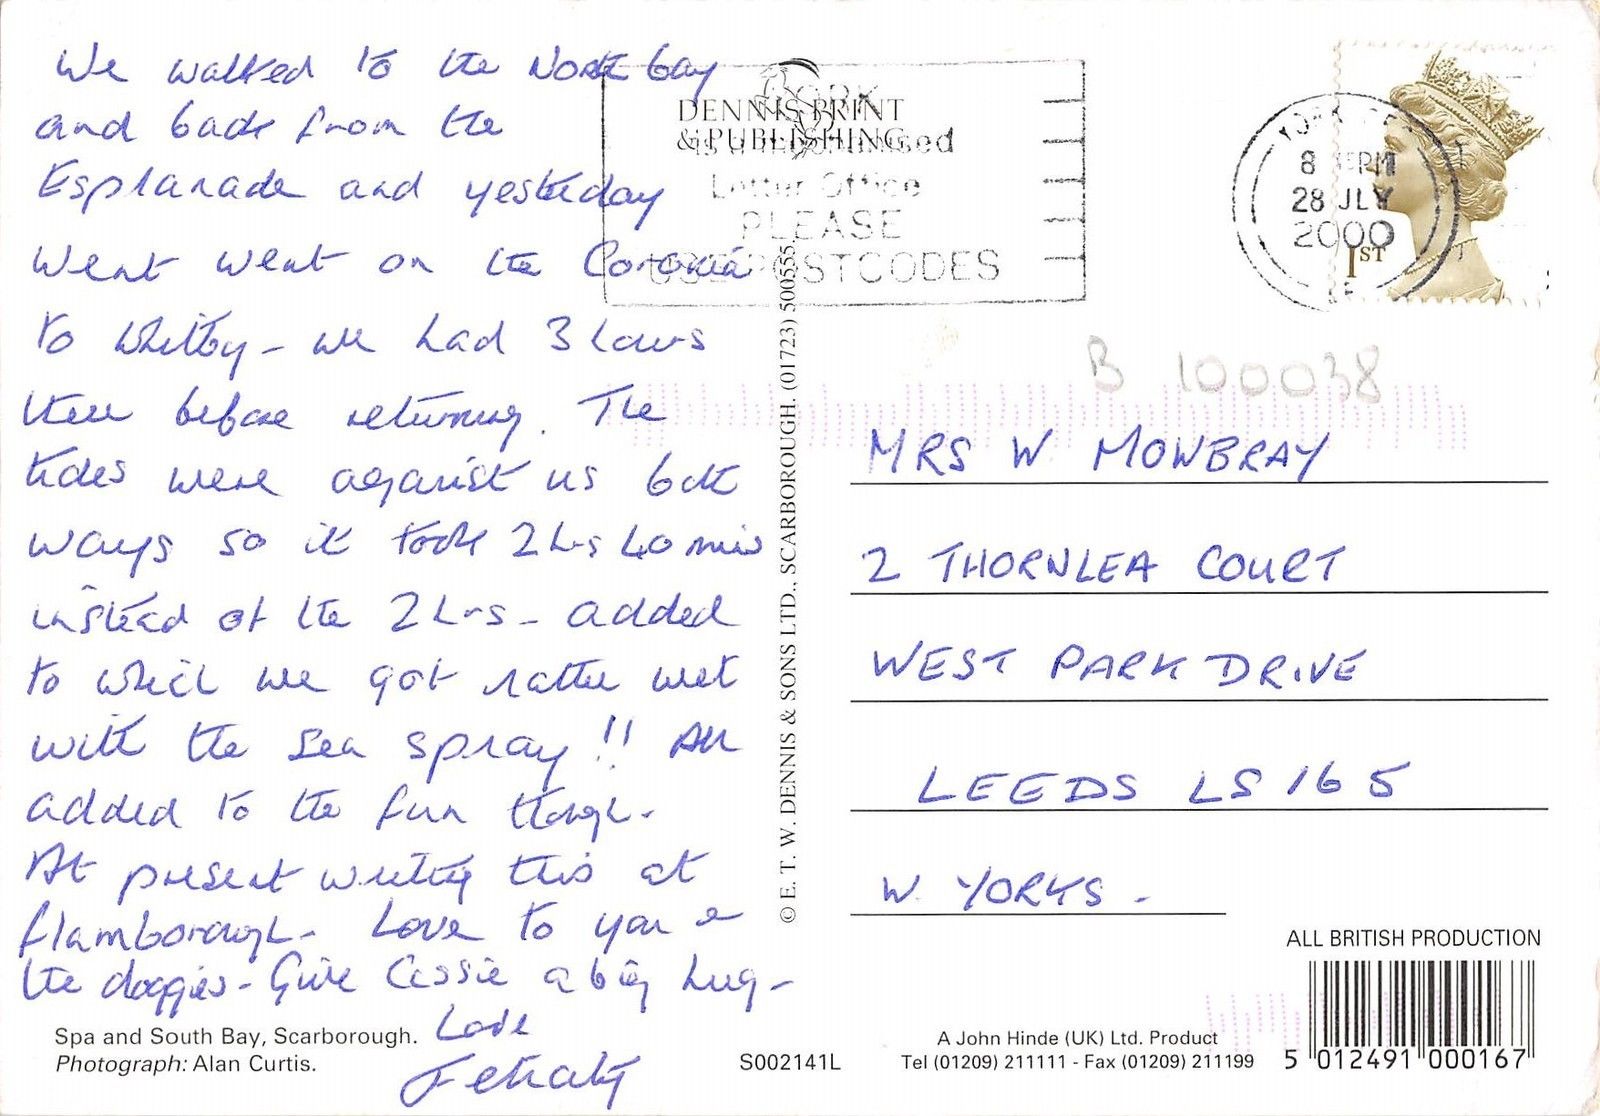 We walked to the North bay
and back from the
Esplanade and yesterday
went went on the Coronia
to Whitby - we had 3 hours
there before returning. The
tides were against us both
ways so it took 2 hrs 40 mins
instead of the 2 hrs - added
to which we got rather wet
with the sea spray !! All
added to the fun though -
At present writing this at
Flamborough - Love to you &
the doggies - Give Cassie a big hug -
Love
Felicity
Spa and South Bay, Scarborough.
Photograph: Alan Curtis.
DENNIS PRINT
& PUBLISHING
YORK
is a mechanised
Letter Office
PLEASE
USE POSTCODES
© E. T. W. DENNIS & SONS LTD., SCARBOROUGH. (01723) 500555.
YORK
8
28 JLY
2000
1ST
B 100038
MRS W MOWBRAY
2 THORNLEA COURT
WEST PARK DRIVE
LEEDS LS 16 5
W. YORKS -
ALL BRITISH PRODUCTION
S002141L
A John Hinde (UK) Ltd. Product
Tel (01209) 211111 - Fax (01209) 211199
5 012491 000167